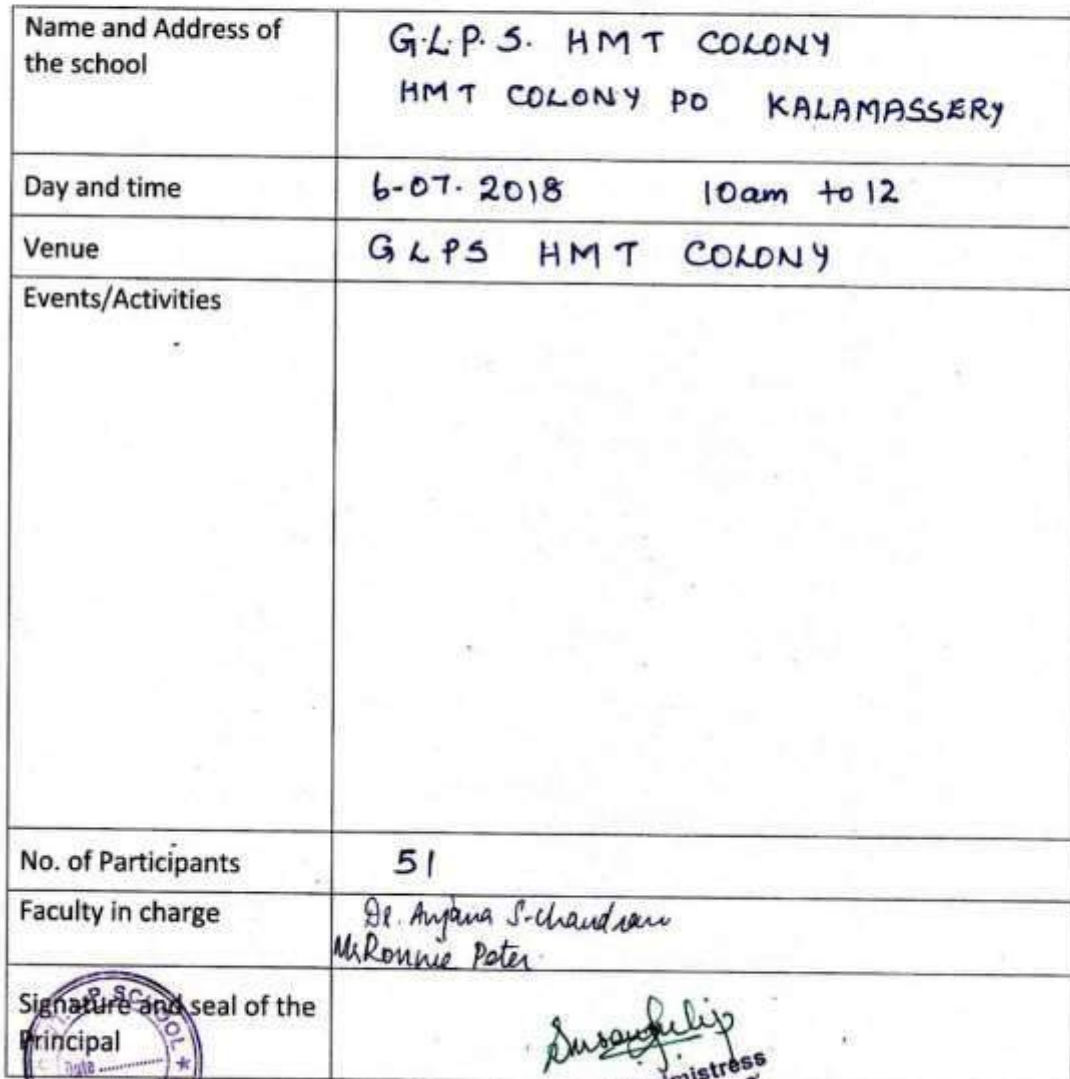 Name and Address of
the school
G.L.P.S. HMT COLONY
HMT COLONY PO KALAMASSERY
Day and time
6-07.2018 10am to 12
Venue
GLPS HMT COLONY
Events/Activities
No. of Participants
51
Faculty in charge
Dr. Anjana S. Chandran
Ms Ronnie Peter
Signature and seal of the
Principal
P SCHOOL *
Date
mistress